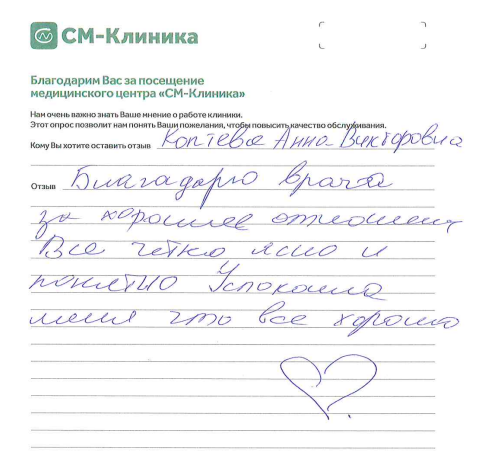 СМ-Клиника
Благодарим Вас за посещение
медицинского центра «СМ-Клиника»
Нам очень важно знать Ваше мнение о работе клиники.
Этот опрос позволит нам понять Ваши пожелания, чтобы повысить качество обслуживания.
Кому Вы хотите оставить отзыв Коптева Анна Викторовна
Отзыв Благадарю врача
за хорошее отношение
Все четко ясно и
понятно Успокоила
меня что все хорошо